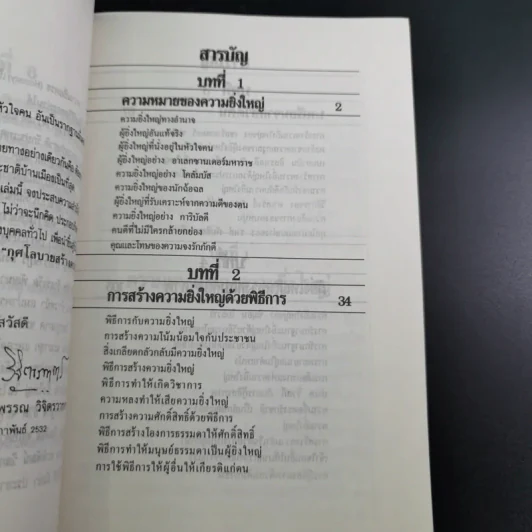 หัวใจคน อันเป็นรากฐาน
ยทางอย่างเดียวกันคือ
ะชาติบ้านเมืองเป็นที่สุด
เล่มนี้ จงประสบความ
ไม่ว่าจะนึกคิด ประกอบ
งบุคคลทั่วไป เพื่อนำ
"กุศโลบายสร้าง
สวัสดี
พรรณ วิจิตรวาท
าพันธ์ 2532
สารบัญ
บทที่ 1
ความหมายของความยิ่งใหญ่ 2
ความยิ่งใหญ่ทางอำนาจ
ผู้ยิ่งใหญ่อันแท้จริง
ผู้ยิ่งใหญ่ที่นั่งอยู่ในหัวใจคน
ผู้ยิ่งใหญ่อย่าง อาเลกซานเดอร์มหาราช
ความยิ่งใหญ่อย่าง โคลัมบัส
ความยิ่งใหญ่ของนักฉ้อฉล
ผู้ยิ่งใหญ่ที่รับเคราะห์จากความดีของตน
ความยิ่งใหญ่อย่าง การิบัลดี
คนดีที่ไม่มีใครกล้ายกย่อง
คุณและโทษของความจงรักภักดี
บทที่ 2
การสร้างความยิ่งใหญ่ด้วยพิธีการ 34
พิธีการกับความยิ่งใหญ่
การสร้างความโน้มน้อมใจกับประชาชน
สิ่งเกลียดกลัวกลับมีความยิ่งใหญ่
พิธีการสร้างความยิ่งใหญ่
พิธีการทำให้เกิดวิชาการ
ความหลงทำให้เสียความยิ่งใหญ่
การสร้างความศักดิ์สิทธิ์ด้วยพิธีการ
พิธีการสร้างโองการธรรมดาให้ศักดิ์สิทธิ์
พิธีการทำให้มนุษย์ธรรมดาเป็นผู้ยิ่งใหญ่
การใช้พิธีการให้ผู้อื่นให้เกียรติแก่ตน